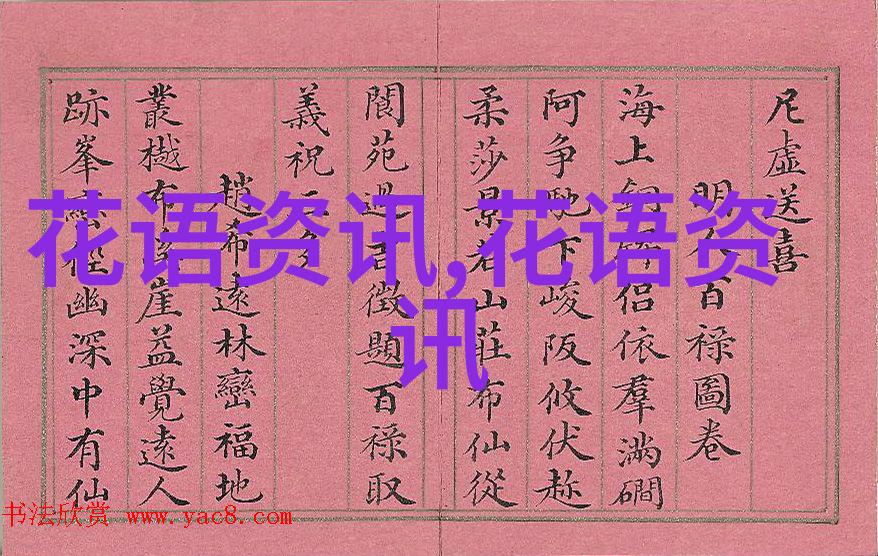 尼虛送喜
明人百祿圖卷
海上侶依羣滿磵
阿爭馳下峻阪攸伏趂
柔莎景老山莊布仙從
閬苑過吉徵題百祿取
義祝三多
趙希遠林巒福地
叢樾布崖益覺遠人
跡峯徑幽深中有仙
花语资讯,花语资
讯
书法欣赏 www.yac8.com